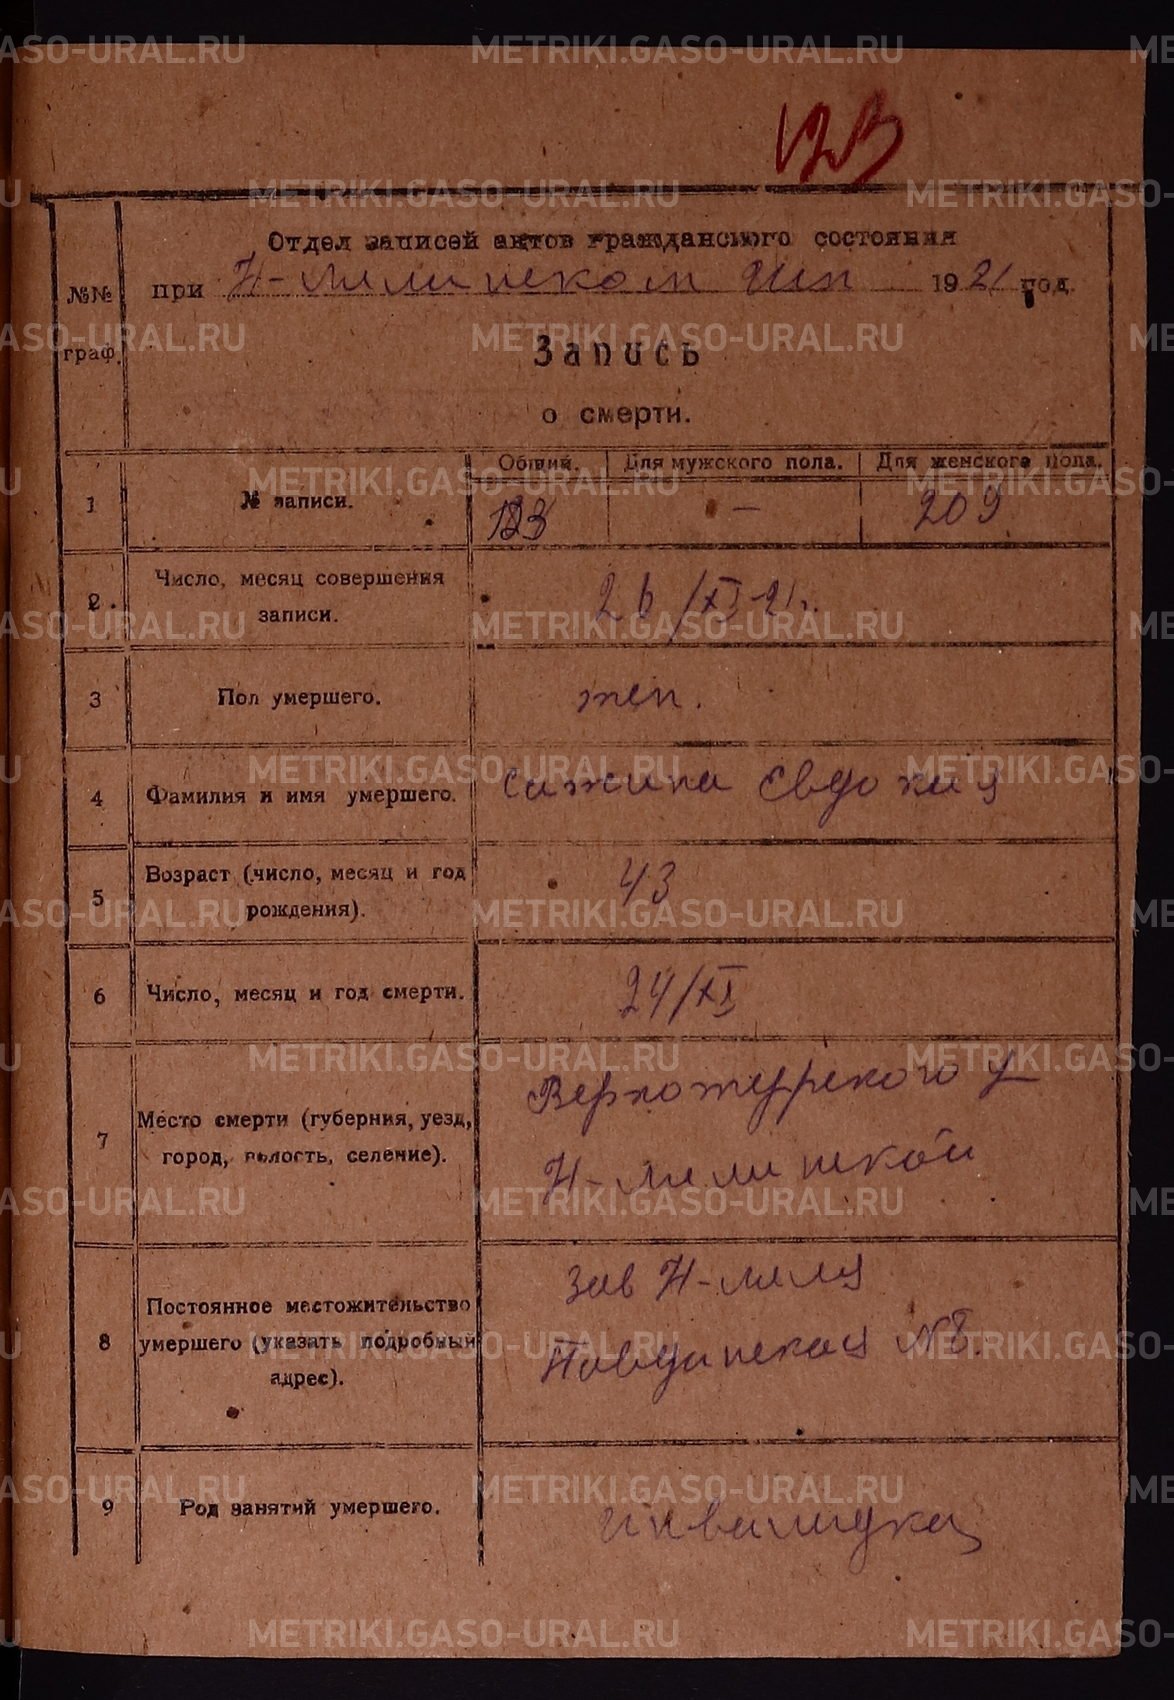 123
Отдел записей актов гражданского состояния
при Н-Лялинском 1921 год.
№№ граф.
Запись
о смерти.
Общий. Для мужского пола. Для женского пола.
1 № записи. 123 — 209
2. Число, месяц совершения записи. 26/XI-21г.
3 Пол умершего. жен.
4 Фамилия и имя умершего. Сажина Евдокия
5 Возраст (число, месяц и год рождения). 43
6 Число, месяц и год смерти. 24/XI
7 Место смерти (губерния, уезд, город, волость, селение). Верхотурского у
Н-Лялинской
8 Постоянное местожительство умершего (указать подробный адрес). Зав Н-Ляля
Павдинская №8.
9 Род занятий умершего. инвалидка
METRIKI.GASO-URAL.RU